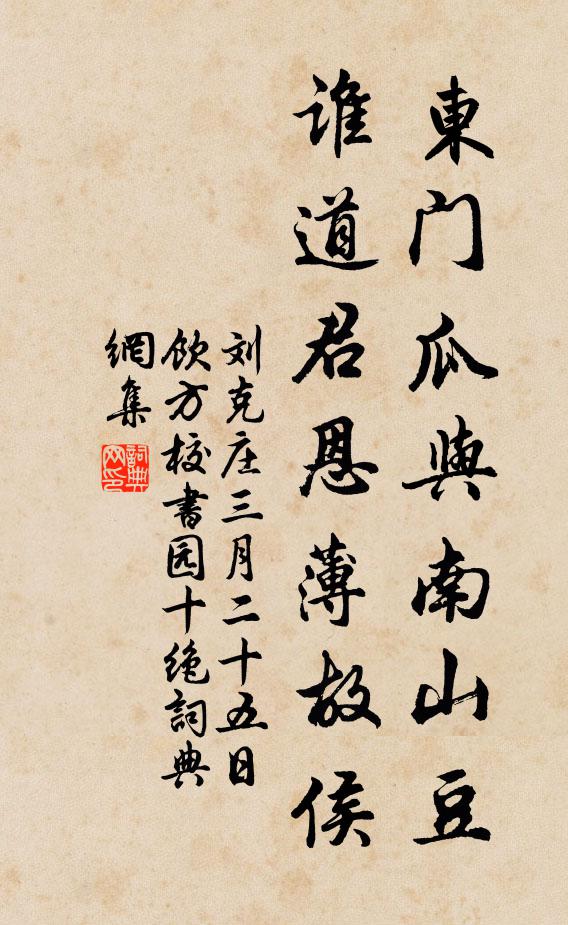 東门瓜與南山豆
谁道君恩薄故侯
刘克庄三月二十五日
饮方校書园十绝詞典
網集
詞典
网印